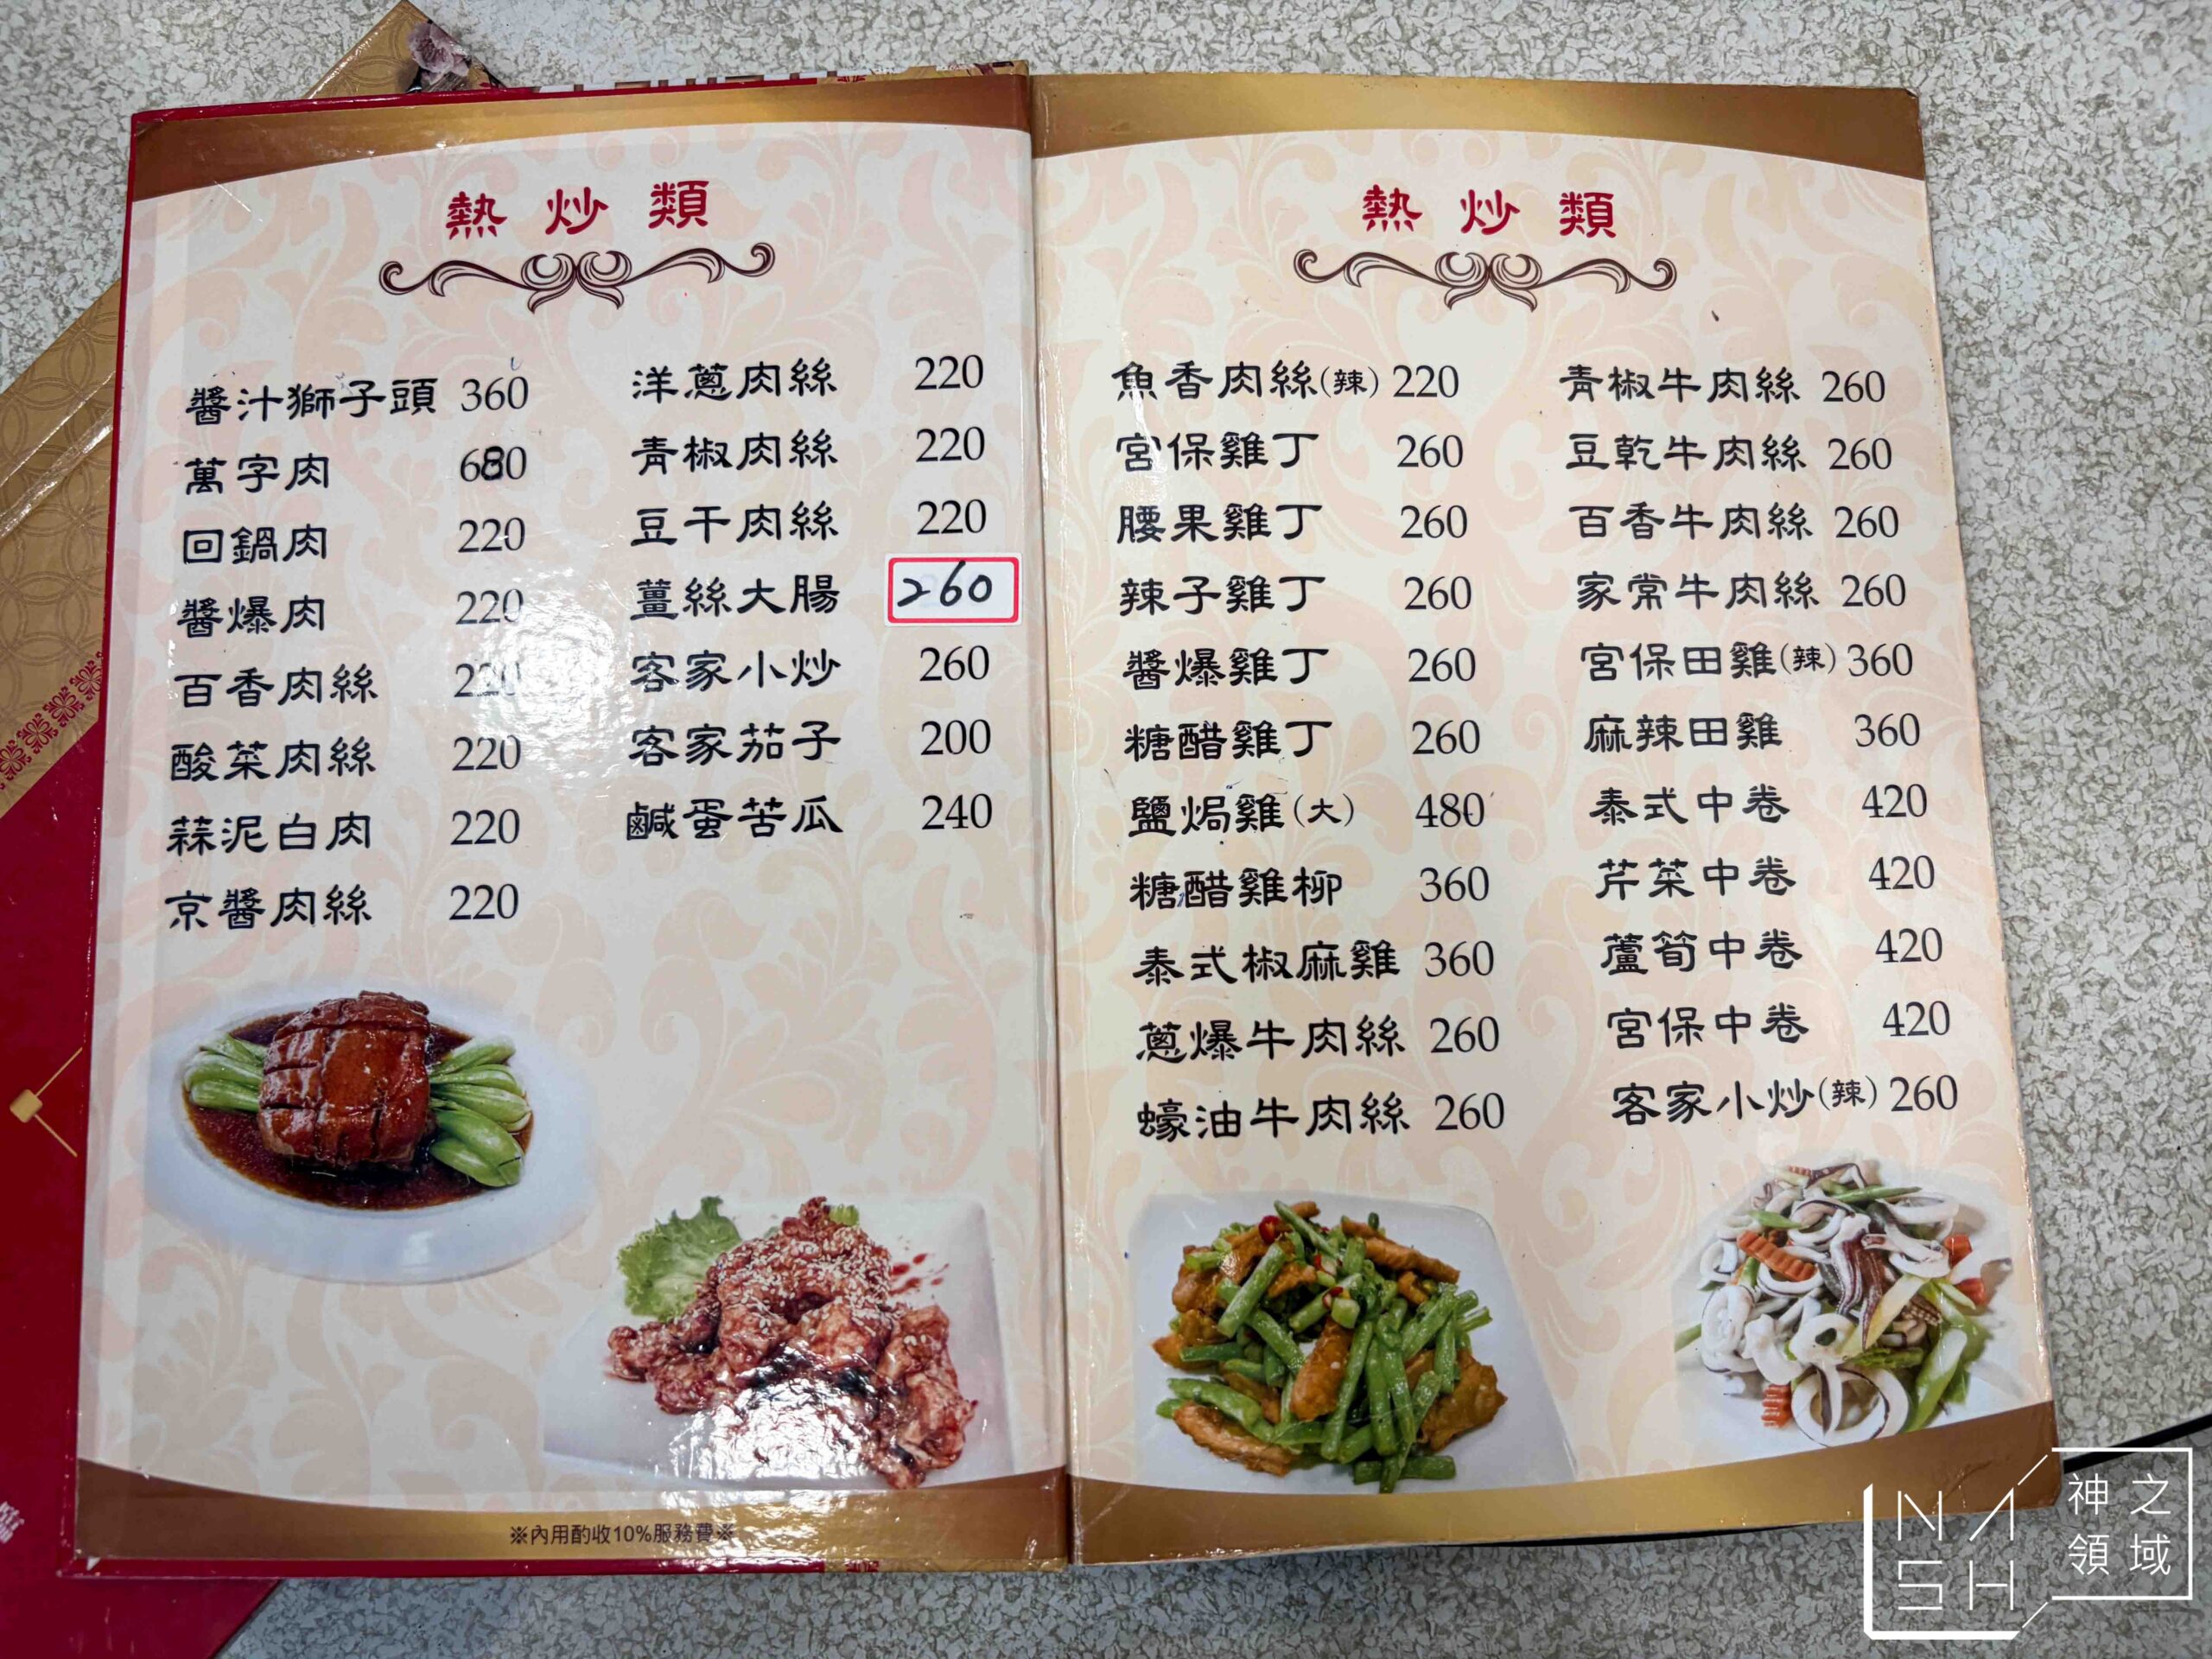 熱炒類
醬汁獅子頭 360
萬字肉 680
回鍋肉 220
醬爆肉 220
百香肉絲 220
酸菜肉絲 220
蒜泥白肉 220
京醬肉絲 220
洋蔥肉絲 220
青椒肉絲 220
豆干肉絲 220
薑絲大腸 260
客家小炒 260
客家茄子 200
鹹蛋苦瓜 240
※內用酌收10%服務費※
熱炒類
魚香肉絲(辣) 220
宮保雞丁 260
腰果雞丁 260
辣子雞丁 260
醬爆雞丁 260
糖醋雞丁 260
鹽焗雞(大) 480
糖醋雞柳 360
泰式椒麻雞 360
蔥爆牛肉絲 260
蠔油牛肉絲 260
青椒牛肉絲 260
豆乾牛肉絲 260
百香牛肉絲 260
家常牛肉絲 260
宮保田雞(辣) 360
麻辣田雞 360
泰式中卷 420
芹菜中卷 420
蘆筍中卷 420
宮保中卷 420
客家小炒(辣) 260
NASH
神之領域